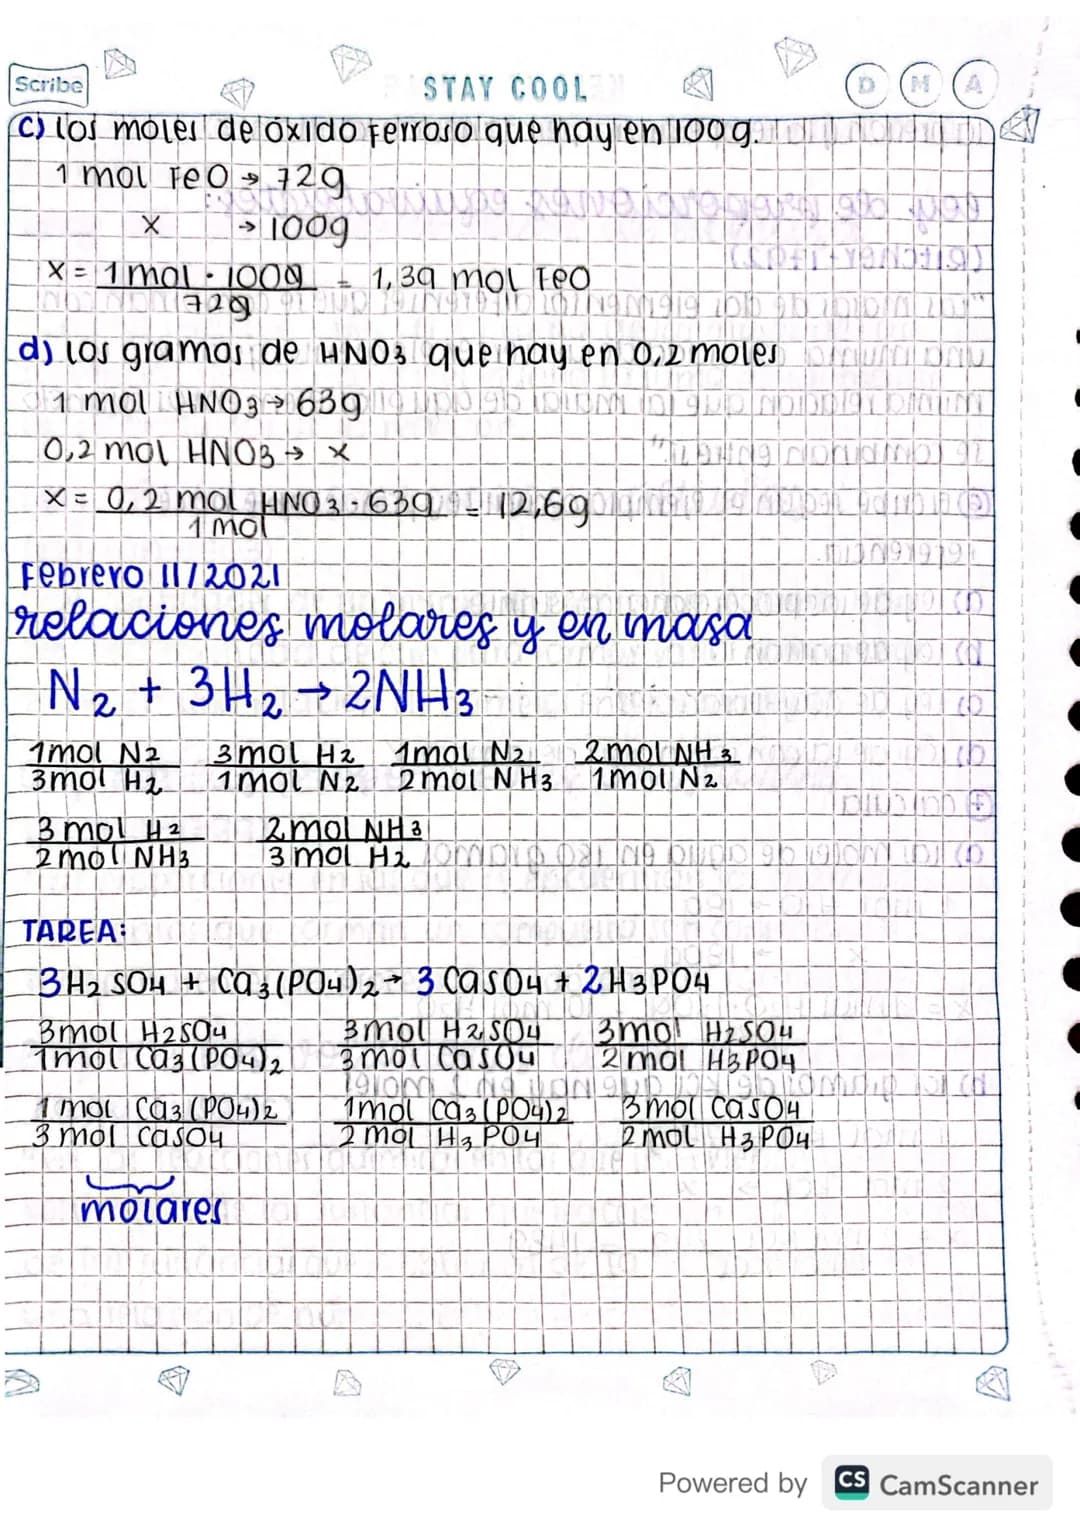 Scribe
STAY COOL
D M A
c) los moles de óxido ferroso que hay en 100g.
1 mol FeO → 72g
x → 100g
x = 1 mol · 100g = 1,39 mol FeO
72g
d) los gramos de HNO3 que hay en 0,2 moles
1 mol HNO3 → 63g
0,2 mol HNO3 → x
x = 0,2 mol HNO3 · 63g = 12,6g
1 mol
Febrero 11/2021
relaciones molares y en masa
N2 + 3H2 → 2NH3
1mol N2 3mol H2 1mol N2 2mol NH3
3mol H2 1mol N2 2mol NH3 1mol N2
3 mol H2 2mol NH3
2mol NH3 3 mol H2
TAREA:
3H2SO4 + Ca3(PO4)2 → 3CaSO4 + 2H3PO4
3mol H2SO4 3mol H2SO4 3mol H2SO4
1mol Ca3(PO4)2 3mol CaSO4 2mol H3PO4
1mol Ca3(PO4)2 1mol Ca3(PO4)2 3mol CaSO4
3mol CaSO4 2mol H3PO4 2mol H3PO4
molares
Powered by CS CamScanner